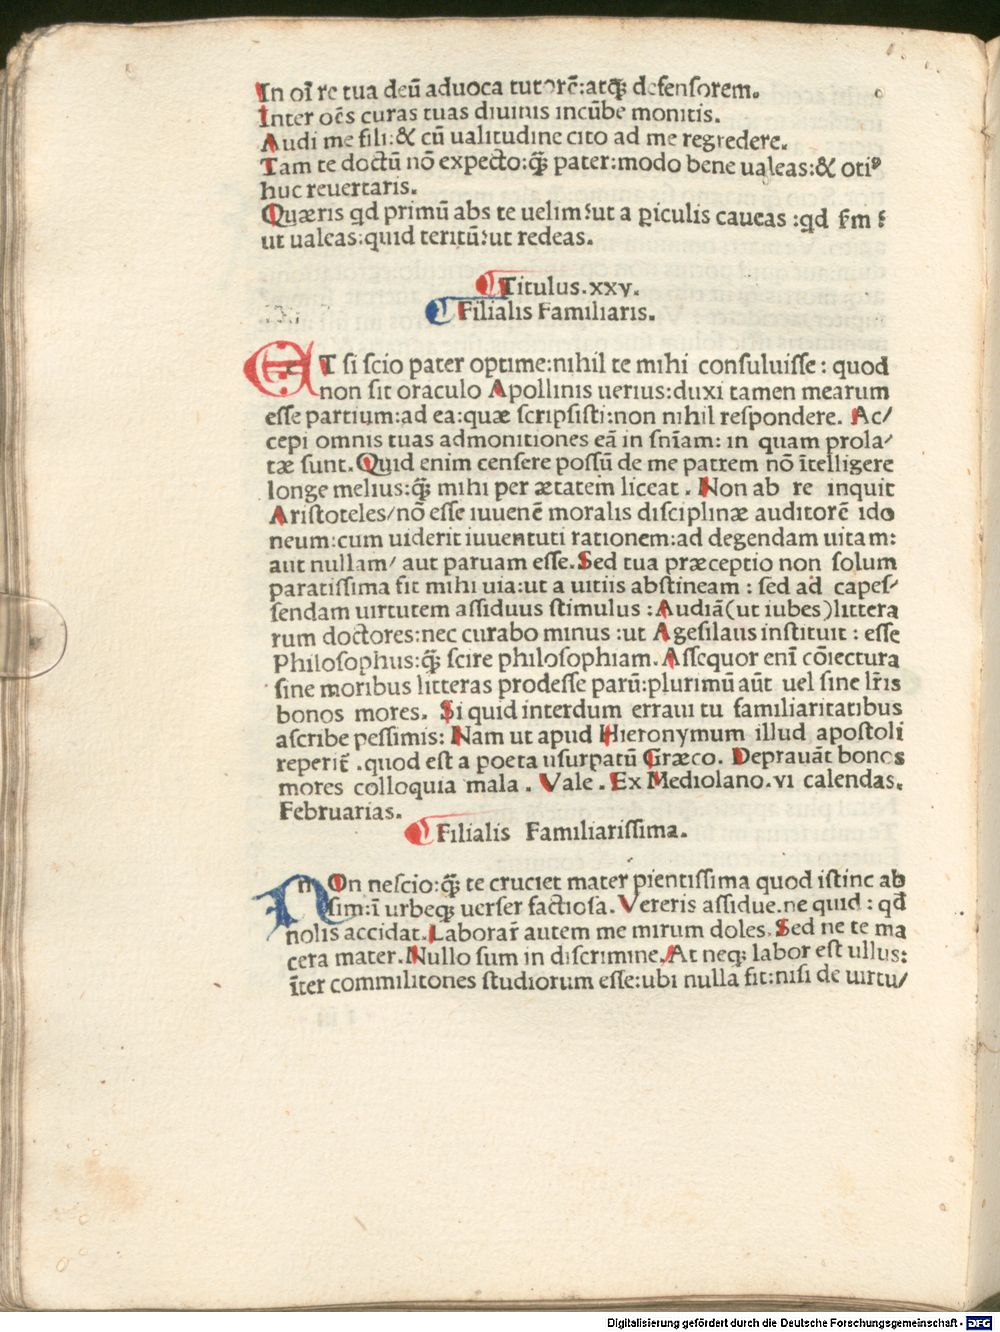 In oı̄ re tua deū aduoca tutorē:atqꝫ defensorem.
Inter oēs curas tuas diuinis incūbe monitis.
Audi me fili:& cū ualitudine cito ad me regredere.
Tam te doctū nō expecto:qꝫ pater:modo bene ualeas:& otiꝰ
huc reuertaris.
Quæris qd primū abs te uelim:ut a ꝑiculis caueas :qd
ut ualeas:quid tertiū:ut redeas.
Titulus.xxv.
Filialis Familiaris.
ET si scio pater optime:nihil te mihi consuluisse: quod
non sit oraculo Apollinis uerius:duxi tamen mearum
esse partium:ad ea:quæ scripsisti:non nihil respondere. Ac/
cepi omnis tuas admonitiones eā in sn̄iam: in quam prola/
tæ sunt.Quid enim censere possū de me patrem nō ītelligere
longe melius:qꝫ mihi per ætatem liceat. Non ab re inquit
Aristoteles/nō esse iuuenē moralis disciplinæ auditorē ido
neum:cum uiderit iuuentuti rationem:ad degendam uitam:
aut nullam/ aut paruam esse.Sed tua præceptio non solum
paratissima fit mihi uia:ut a uitiis abstineam : sed ad capes/
sendam uirtutem assiduus stimulus :Audiā(ut iubes)littera
rum doctores:nec curabo minus :ut Agesilaus instituit : esse
Philosophus:qꝫ scire philosophiam.Assequor enī cōiectura
sine moribus litteras prodesse parū:plurimū aūt uel sine lr̄is
bonos mores. Si quid interdum erraui tu familiaritatibus
ascribe pessimis: Nam ut apud Hieronymum illud apostoli
reperit̄ .quod est a poeta usurpatū Græco. Deprauāt bonos
mores colloquia mala . Vale . Ex Mediolano.vi calendas.
Februarias.
Filialis Familiarissima.
nOn nescio:qꝫ te cruciet mater pientissima quod istinc ab
sim:ī urbeqꝫ uerser factiosa. Vereris assidue.ne quid : qd̄
nolis accidat.Laborar̄ autem me mirum doles.Sed ne te ma
cera mater.Nullo sum in discrimine.At neqꝫ labor est ullus:
īter commilitones studiorum esse:ubi nulla fit:nisi de uirtu/
Digitalisierung gefördert durch die Deutsche Forschungsgemeinschaft - DFG